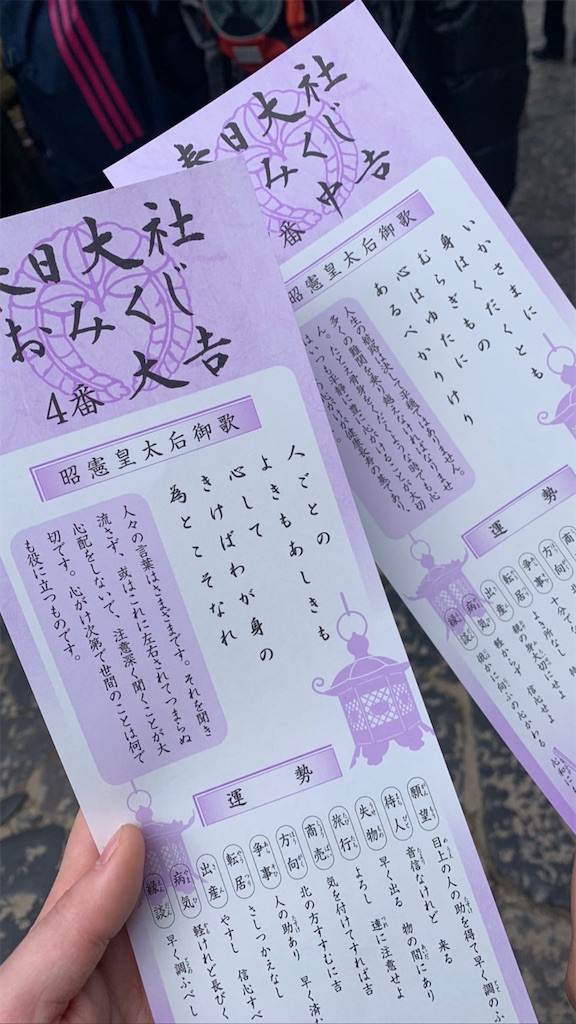 春日大社
おみくじ
4番 大吉
昭憲皇太后御歌
人ごとの
よきもあしきも
心して
きけばわが身の
為とこそなれ
人々の言葉はさまざまです。それを聞き
流さず、或はこれに左右されてつまらぬ
心配をしないで、注意深く聞くことが大
切です。心がけ次第で世間のことは何で
も役に立つものです。
運勢
願望 目上の人の助を得て早く調のふ
待人 音信なけれど 来る
失物 早く出る 物の間にあり
旅行 よろし 連に注意せよ
商売 気を付けてすれば吉
方向 北の方すすむに吉
争事 人の助あり 早く済
転居 さしつかえなし
出産 やすし 信心すべ
病気 軽けれど長びく
縁談 早く調ふべし
春日大社
おみくじ
番 中吉
昭憲皇太后御歌
いかさまに
身はくだくとも
むらぎもの
心はゆたに
あるべかりけり
人生の航路は決して平穏ではありません。
多くの難関を乗り越えなければなりませ
ん。たとえ骨身をくだくような時でも、心
はいつも平静に豊に心がけることが大切
運勢
商
方向
争事
転居
出産
病気
縁談